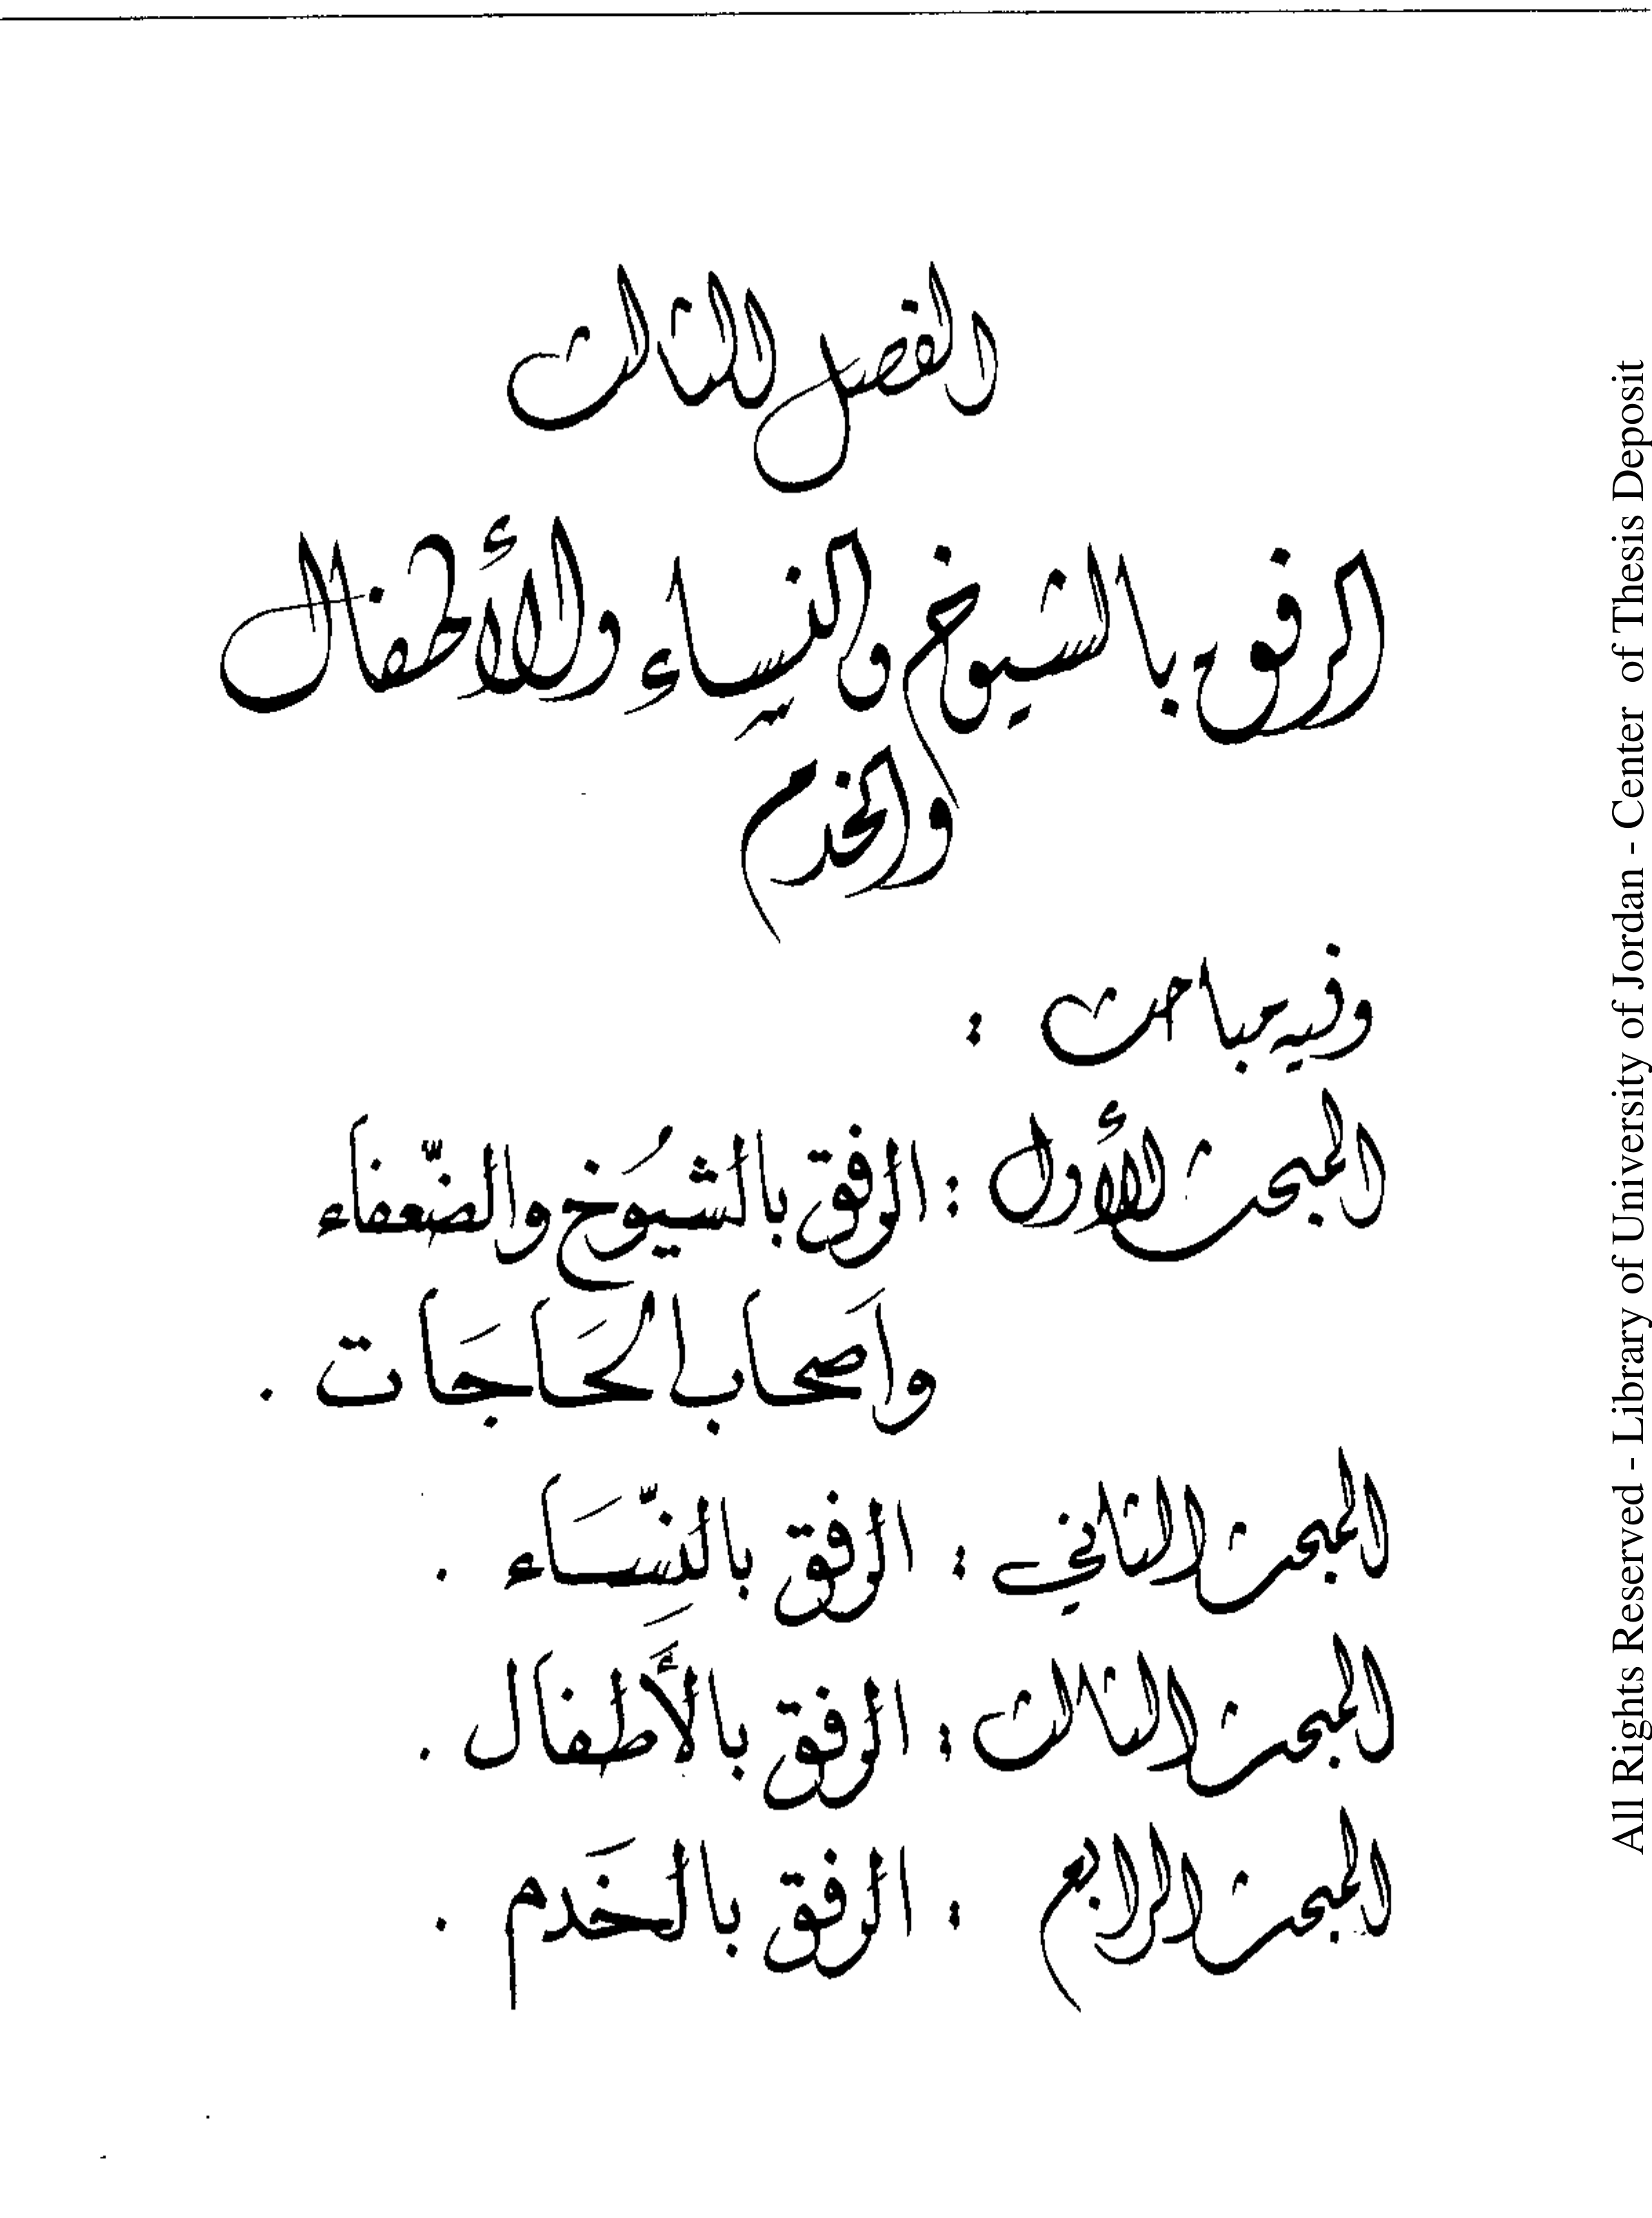 الفصل الثالث
الرفق بالشيوخ والنساء والأطفال
والخدم
وفيه مباحث :
المبحث الأول : الرفق بالشيُوخ والضّعفاء
وأَصحاب الحَاجَات .
المبحث الثاني : الرفق بالنِّسَاء .
المبحث الثالث : الرفق بالأَطفال .
المبحث الرابع : الرفق بالخَدم .
All Rights Reserved - Library of University of Jordan - Center of Thesis Deposit